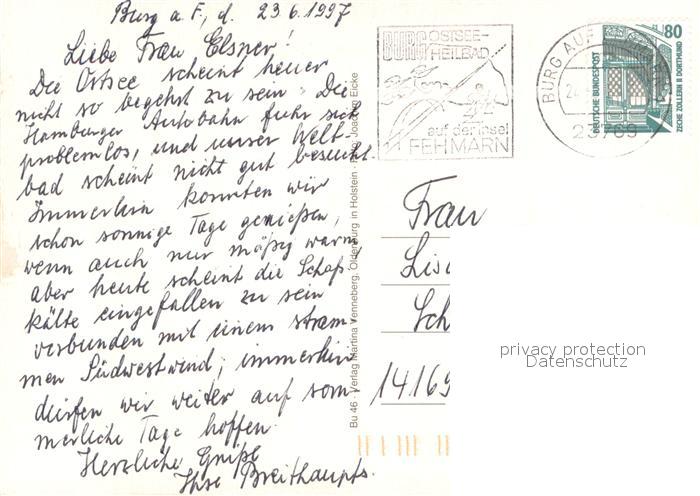 Burg a. F., d. 23.6.1997
Liebe Frau Elsner!
Die Ostsee scheint heuer
nicht so begehrt zu sein. Die
Hamburger Autobahn fuhr sich
problemlos, und unser Welt-
bad scheint nicht gut besucht.
Immerhin konnten wir
schon sonnige Tage genießen,
wenn auch nur mäßig warm,
aber heute scheint die Schafs-
kälte eingefallen zu sein
verbunden mit einem stram-
men Südwestwind; immerhin
dürfen wir weiter auf som-
merliche Tage hoffen.
Herzliche Grüße
Ihre Breithaupts.
Bu 46 · Verlag Martina Venneberg, Oldenburg in Holstein · Joachim Eicke
BURG OSTSEE-
HEILBAD
auf der Insel
FEHMARN
BURG AUF
23769
80
DEUTSCHE BUNDESPOST
ZECHE ZOLLERN II DORTMUND
Frau
Lis
Sch
14169
privacy protection
Datenschutz